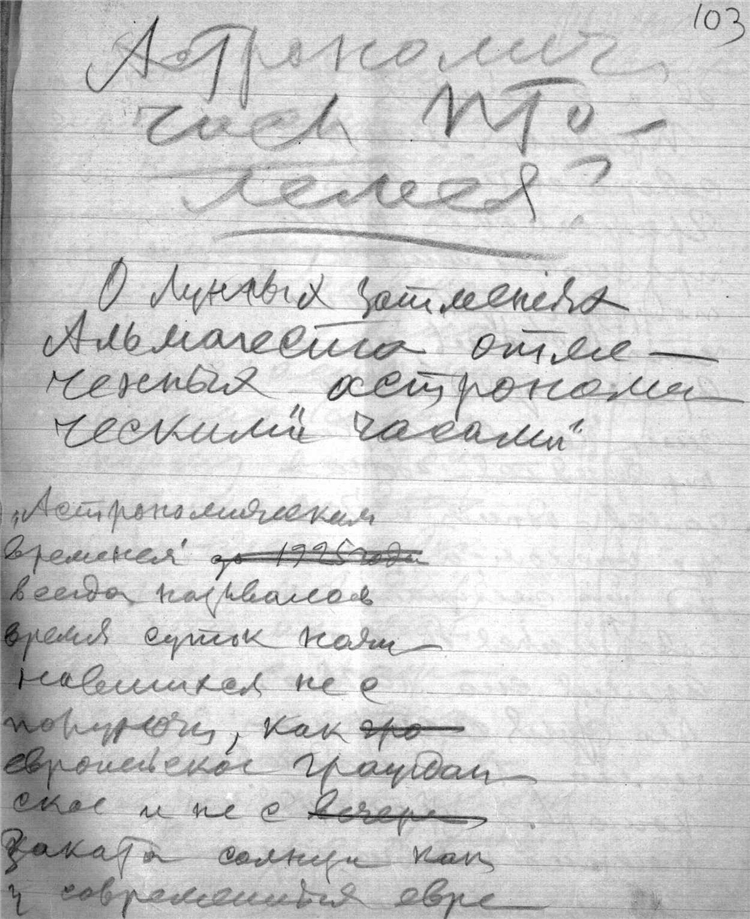 103
Астрономич.
часы Пто-
лемея?
О лунных затмениях
Альмагеста отме-
ченных астрономи
ческими "часами"
"Астрономическим
временем" до 1925 года
всегда называлось
время суток начи
навшихся не с
полуночи, как гра
европейское граждан
ское и не с вечера
заката солнца как
у современных евре